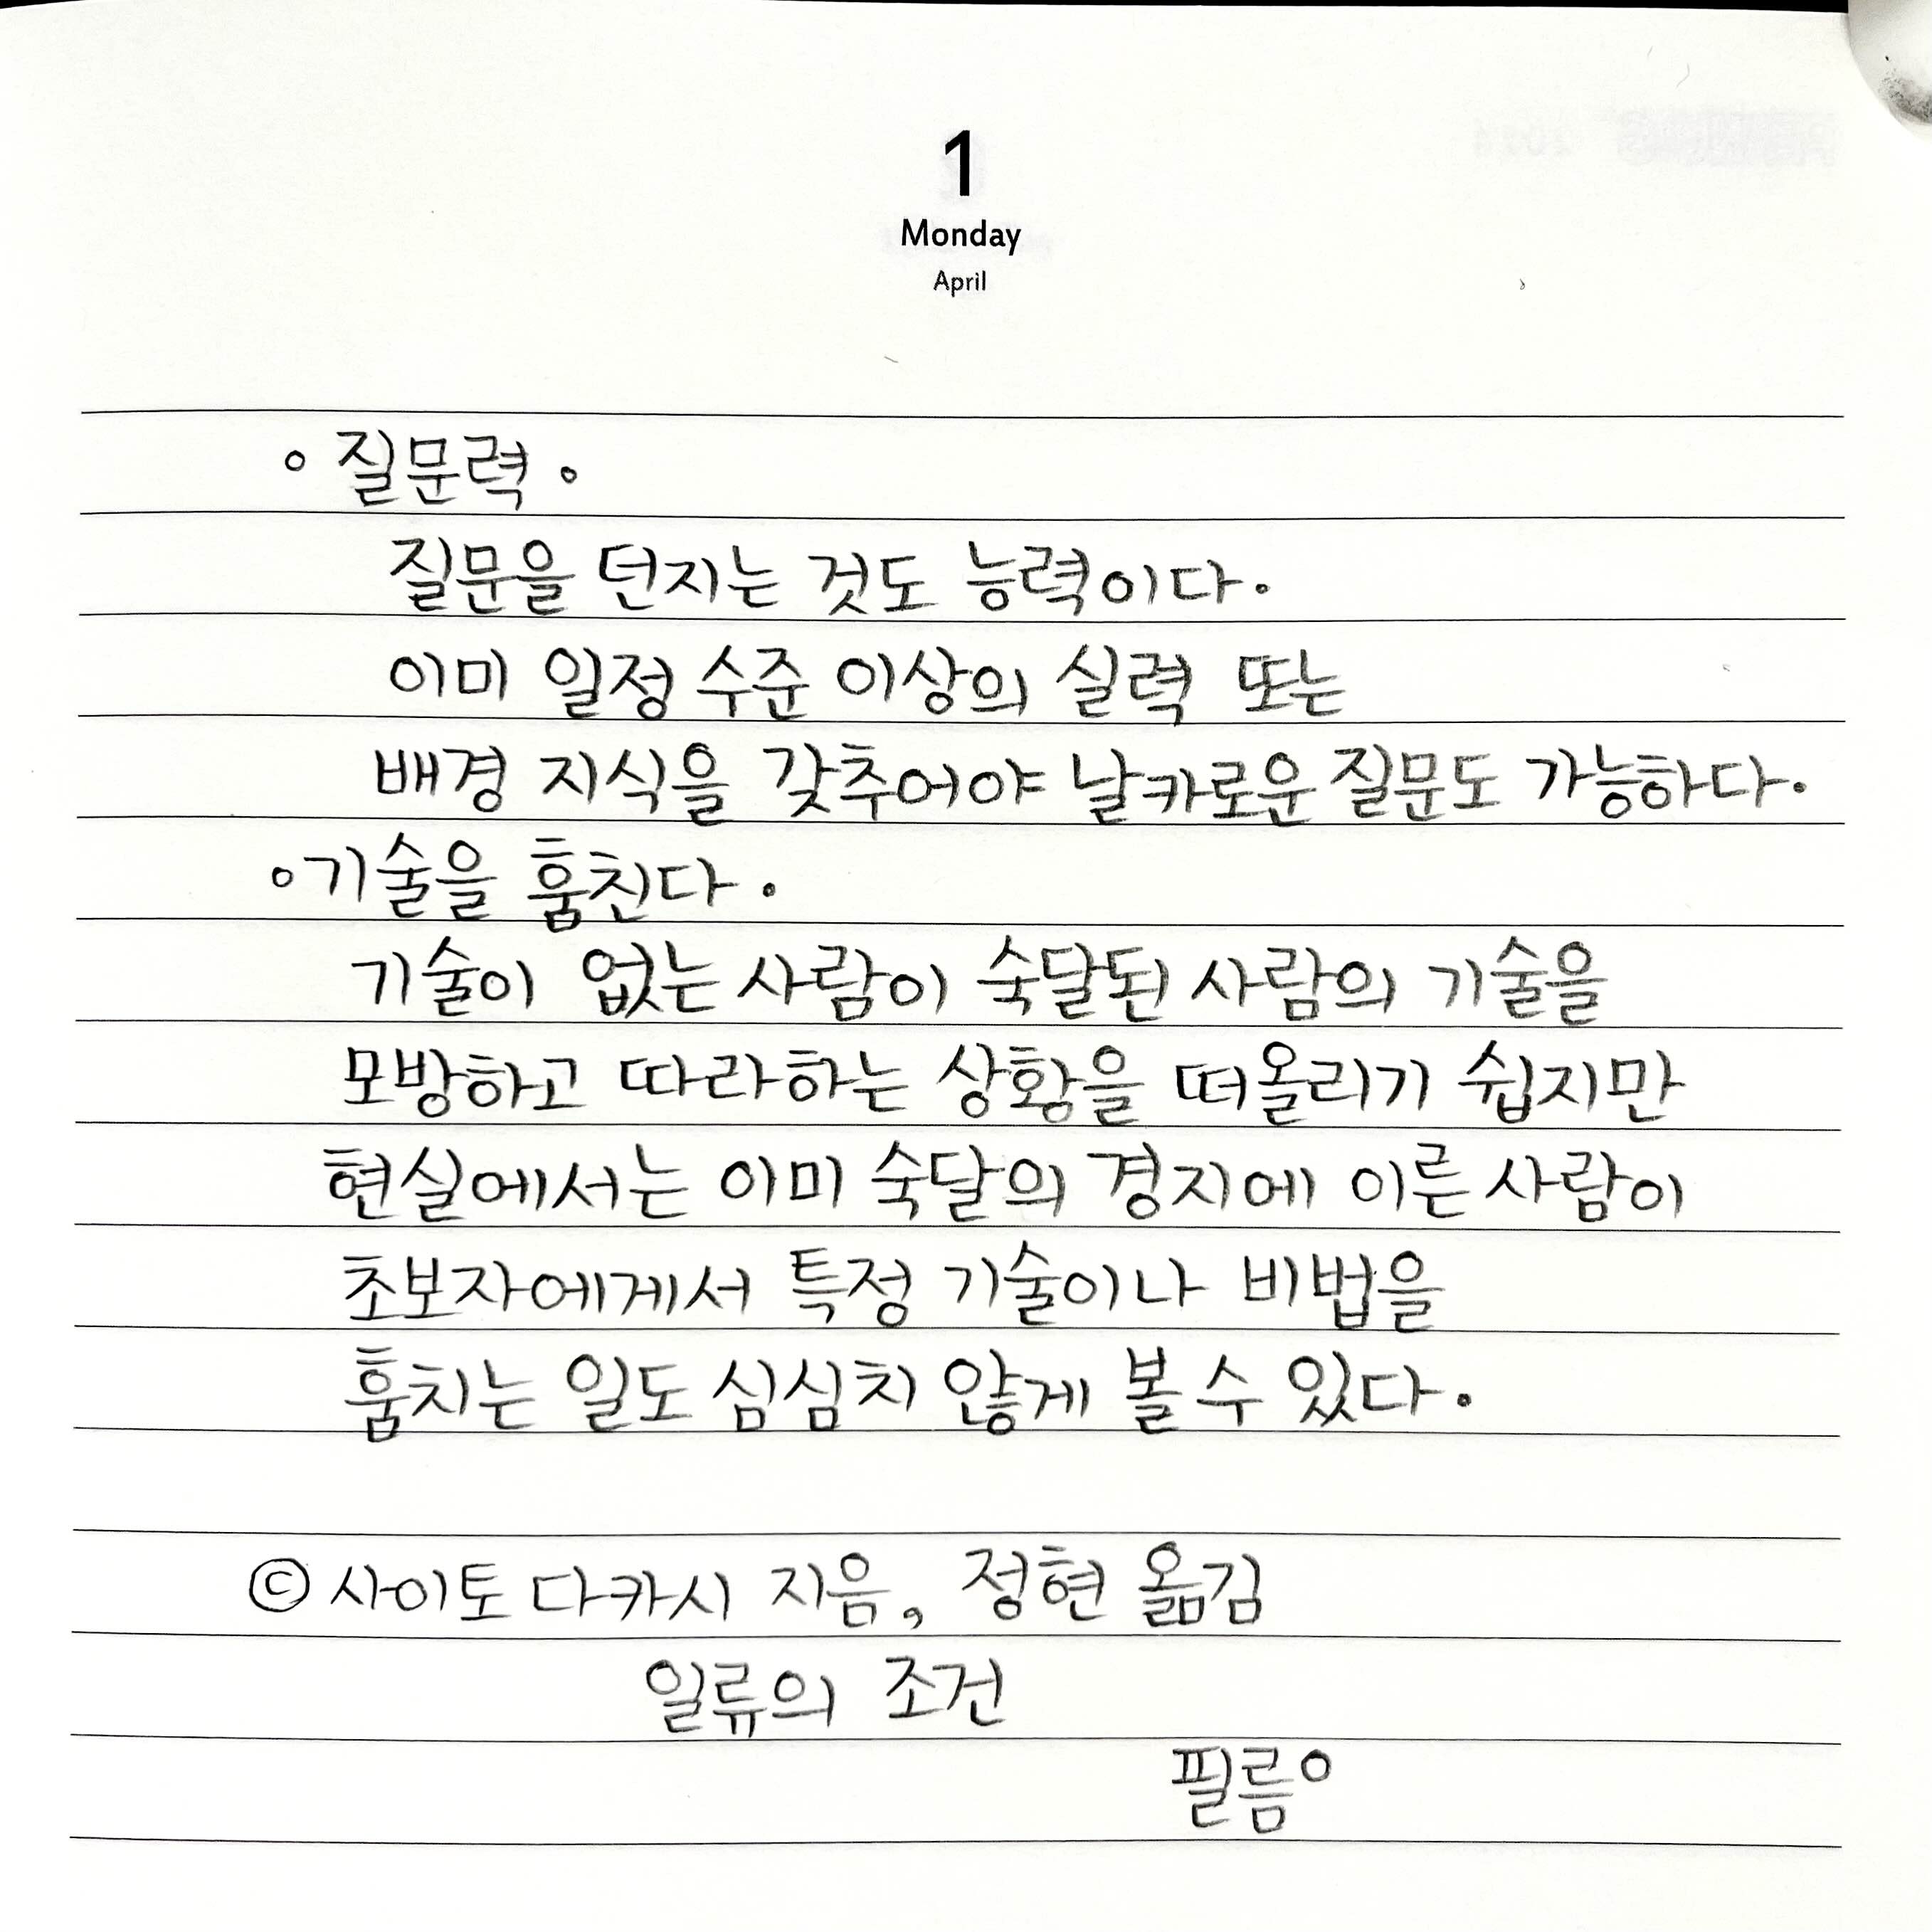 1
Monday
April
◦ 질문력 ◦
질문을 던지는 것도 능력이다.
이미 일정 수준 이상의 실력 또는
배경 지식을 갖추어야 날카로운 질문도 가능하다.
◦기술을 훔친다.
기술이 없는 사람이 숙달된 사람의 기술을
모방하고 따라하는 상황을 떠올리기 쉽지만
현실에서는 이미 숙달의 경지에 이른 사람이
초보자에게서 특정 기술이나 비법을
훔치는 일도 심심치 않게 볼 수 있다.
© 사이토 다카시 지음, 정현 옮김
일류의 조건
필름°